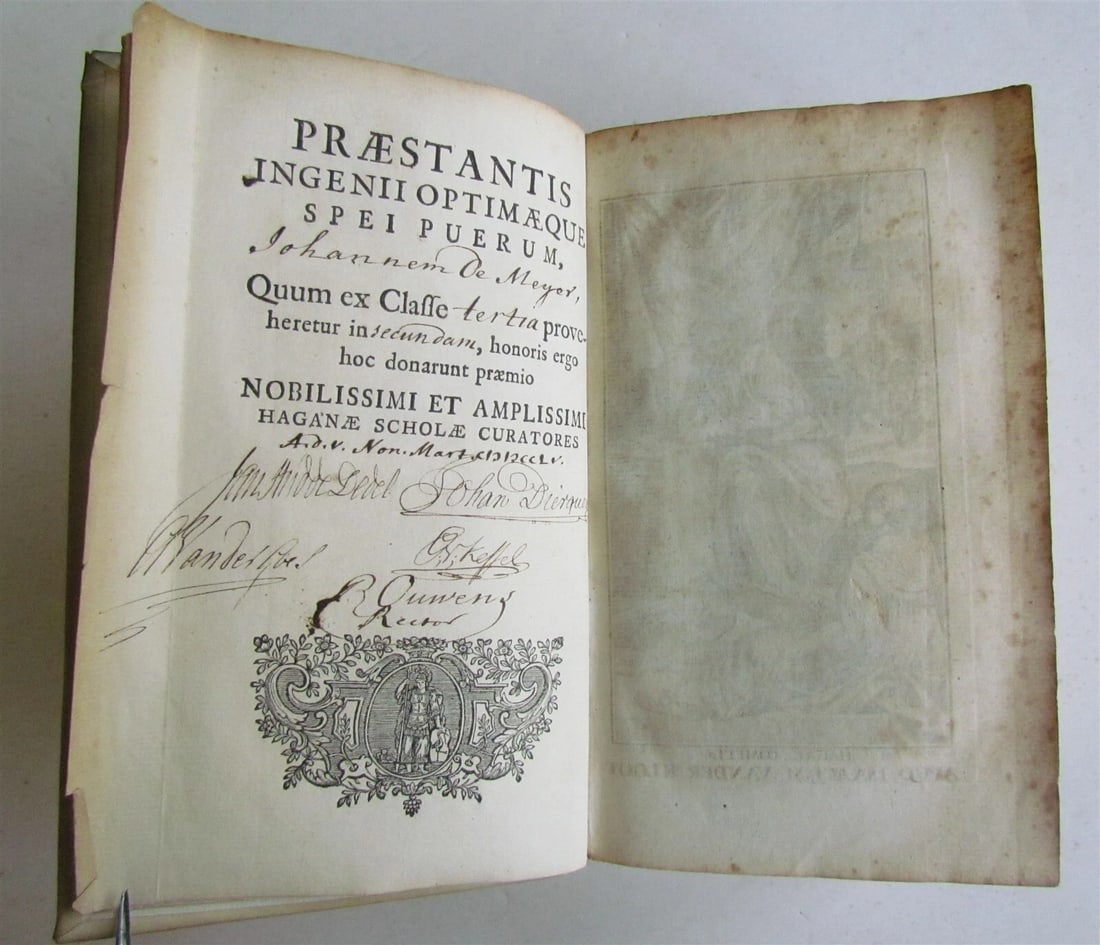 PRÆSTANTIS
INGENII OPTIMÆQUE
SPEI PUERUM,
Johannem De Meyer,
Quum ex Classe tertia prove-
heretur in secundam, honoris ergo
hoc donarunt præmio
NOBILISSIMI ET AMPLISSIMI
HAGANÆ SCHOLÆ CURATORES
A.d.v. Non. Mart
Dedel Johan
Kessel
Ouwens
Rector